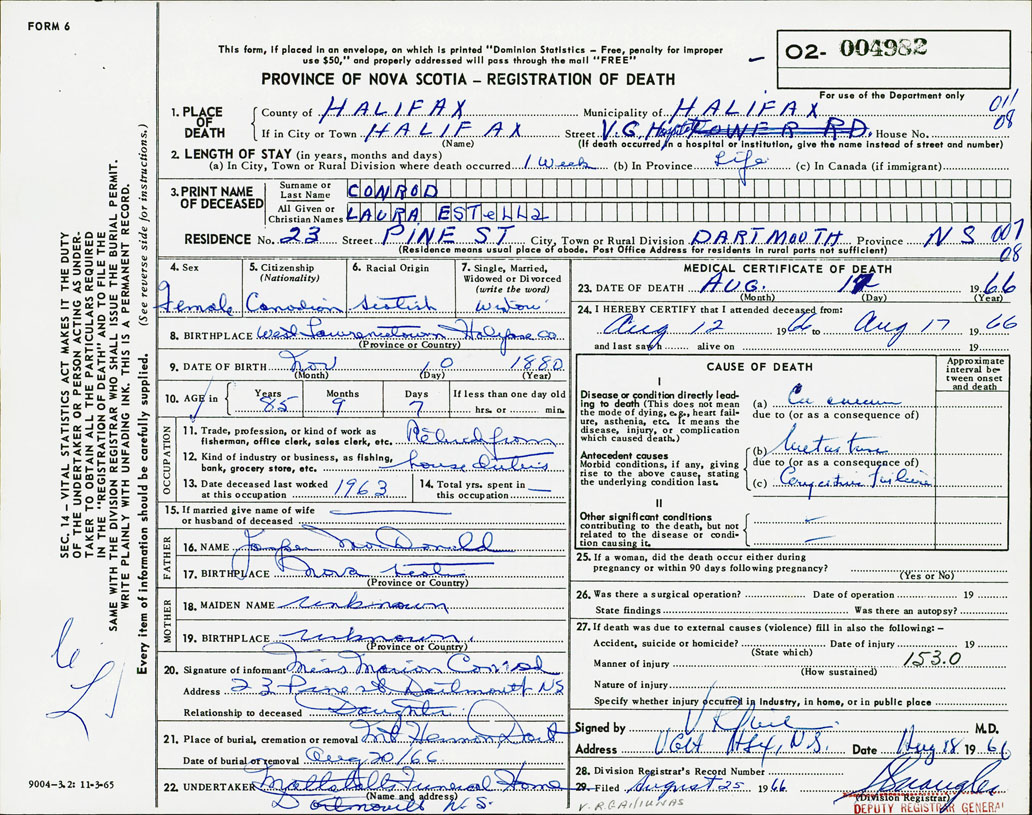 FORM 6
This form, if placed in an envelope, on which is printed "Dominion Statistics – Free, penalty for improper
use $50," and properly addressed will pass through the mail "FREE"
PROVINCE OF NOVA SCOTIA – REGISTRATION OF DEATH
02- 004982
For use of the Department only
011
08
1. PLACE OF DEATH
County of HALIFAX Municipality of HALIFAX
If in City or Town HALIFAX Street V.G. Hospital TOWER RD. House No.
(Name) (If death occurred in a hospital or institution, give the name instead of street and number)
2. LENGTH OF STAY (in years, months and days)
(a) In City, Town or Rural Division where death occurred 1 Week (b) In Province Life (c) In Canada (if immigrant)
3. PRINT NAME OF DECEASED
Surname or Last Name CONROD
All Given or Christian Names LAURA ESTELLA
RESIDENCE No. 23 Street PINE ST City, Town or Rural Division DARTMOUTH Province NS 007
(Residence means usual place of abode. Post Office Address for residents in rural parts not sufficient) 08
4. Sex Female
5. Citizenship (Nationality) Canadian
6. Racial Origin Scotish
7. Single, Married, Widowed or Divorced (write the word) Widow
8. BIRTHPLACE West Lawrencetown Halifax Co
(Province or Country)
9. DATE OF BIRTH Nov 10 1880
(Month) (Day) (Year)
10. AGE in Years 85 Months 9 Days 7 If less than one day old hrs. or min.
OCCUPATION
11. Trade, profession, or kind of work as fisherman, office clerk, sales clerk, etc. Retired from
12. Kind of industry or business, as fishing, bank, grocery store, etc. house duties
13. Date deceased last worked at this occupation 1963
14. Total yrs. spent in this occupation —
15. If married give name of wife or husband of deceased
FATHER
16. NAME McDonald
17. BIRTHPLACE Nova Scotia
(Province or Country)
MOTHER
18. MAIDEN NAME unknown
19. BIRTHPLACE unknown
(Province or Country)
20. Signature of informant Miss Marion Conrod
Address 23 Pine St Dartmouth NS
Relationship to deceased Daughter
21. Place of burial, cremation or removal Mt Hermon Dart
Date of burial or removal Aug 20/66
22. UNDERTAKER Mattatall Funeral Home
(Name and address)
Dartmouth N.S.
MEDICAL CERTIFICATE OF DEATH
23. DATE OF DEATH AUG. 17 1966
(Month) (Day) (Year)
24. I HEREBY CERTIFY that I attended deceased from:
Aug 12 1966 to Aug 17 1966
and last saw h alive on 19
CAUSE OF DEATH
Approximate interval between onset and death
I
Disease or condition directly leading to death (This does not mean the mode of dying, e.g., heart failure, asthenia, etc. It means the disease, injury, or complication which caused death.)
(a) Ca
due to (or as a consequence of)
Antecedent causes
Morbid conditions, if any, giving rise to the above cause, stating the underlying condition last.
(b)
due to (or as a consequence of)
(c) Congestive Failure
II
Other significant conditions contributing to the death, but not related to the disease or condition causing it.
25. If a woman, did the death occur either during
pregnancy or within 90 days following pregnancy?
(Yes or No)
26. Was there a surgical operation? Date of operation 19
State findings Was there an autopsy?
27. If death was due to external causes (violence) fill in also the following: –
Accident, suicide or homicide? Date of injury 19
(State which)
Manner of injury 153.0
(How sustained)
Nature of injury
Specify whether injury occurred in Industry, in home, or in public place
Signed by M.D.
Address VGH Hfx, N.S. Date Aug 18 1966
28. Division Registrar's Record Number
29. Filed August 25 1966
(Division Registrar)
DEPUTY REGISTRAR GENERAL
SEC. 14 – VITAL STATISTICS ACT MAKES IT THE DUTY
OF THE UNDERTAKER OR PERSON ACTING AS UNDER-
TAKER TO OBTAIN ALL THE PARTICULARS REQUIRED
IN THE "REGISTRATION OF DEATH" AND TO FILE THE
SAME WITH THE DIVISION REGISTRAR WHO SHALL ISSUE THE BURIAL PERMIT.
WRITE PLAINLY WITH UNFADING INK. THIS IS A PERMANENT RECORD.
Every item of information should be carefully supplied. (See reverse side for instructions.)
9004-3.2: 11-3-65